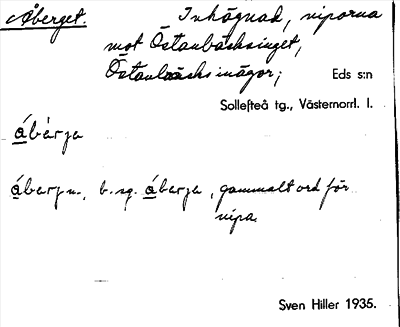 Åberget. Inhägnad, viporna
mot Östanbäcksinget,
Östanbäcks inägor; Eds s:n
Sollefteå tg., Västernorrl. l.
ábærja
ábærj n., b. sg. ábærja, gammalt ord för
vipa.
Sven Hiller 1935.